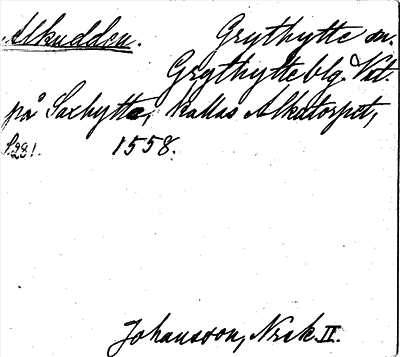 Alkudden. Grythytte sn.
Grythytte blg. Vst.
på Saxhytte, kallas Alkatorpet,
1558.
Johansson, Nrsk II.